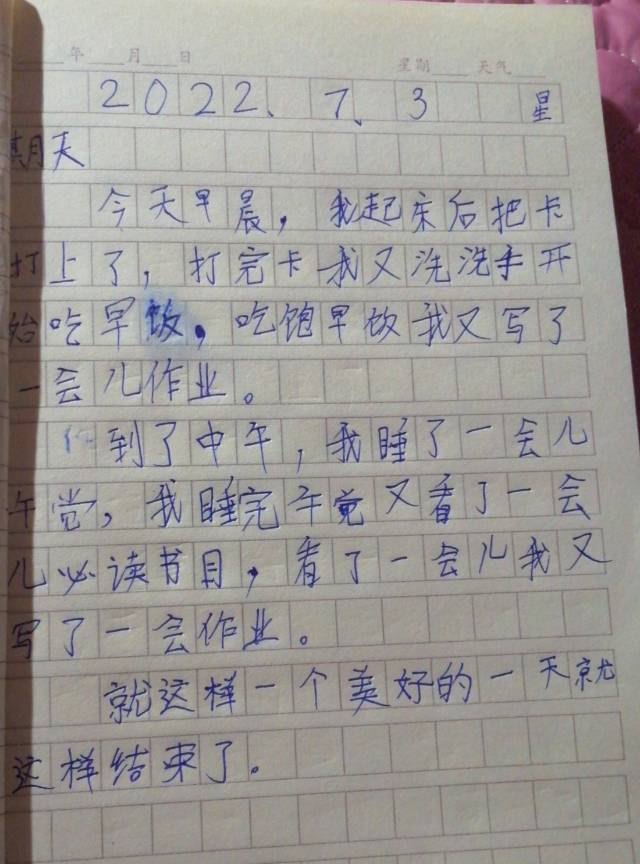 年 月 日 星期 天气
2022、7、3 星
期天
今天早晨，我起床后把卡
打上了，打完卡我又洗洗手开
始吃早饭，吃饱早饭我又写了
一会儿作业。
到了中午，我睡了一会儿
午觉，我睡完午觉又看了一会
儿必读书目，看了一会儿我又
写了一会作业。
就这样一个美好的一天就
这样结束了。